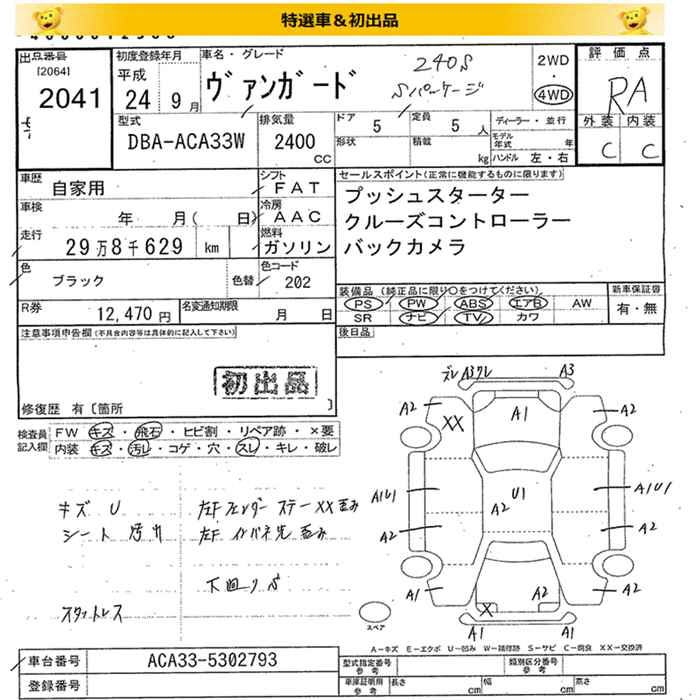 特選車＆初出品
出品番号
[2064]
2041
初度登録年月
平成
24 9月
車名・グレード
ヴァンガード
240S
Sパッケージ
2WD
・
4WD
評価点
RA
外装 内装
C C
型式
DBA-ACA33W
排気量
2400
cc
ドア 5
定員 5 人
形状
積載 kg
ディーラー・並行
モデル年式 年
ハンドル 左・右
車歴
自家用
シフト
FAT
車検
年 月( 日)
冷房
AAC
走行
29万8千629 km
燃料
ガソリン
色
ブラック
色替
色コード
202
セールスポイント(正常に機能するものに限ります)
プッシュスターター
クルーズコントローラー
バックカメラ
R券
12,470円
名変通知期限
月 日
装備品(純正品に限り○をつけてください。)
PS PW ABS エアB AW
SR ナビ TV カワ
新車保証書
有・無
注意事項申告欄(不具合内容等は具体的に記入して下さい)
後日品
初出品
修復歴 有〔箇所 〕
検査員記入欄
FW キズ・飛石・ヒビ割・リペア跡・×要
内装 キズ・汚レ・コゲ・穴・スレ・キレ・破レ
キズ U
シート 汚れ
スタットレス
左Fフェンダー ステーXX歪み
左F インパネ先 歪み
下回りS
ズレ A3ワレ A3
A2 XX A1 A2
A1U1 U1 A1U1
A2 A2 A2
A1 X A2 A2
A1 A1
スペア
A－キズ E－エクボ U－凹み W－補修跡 S－サビ C－腐食 XX－交換済
車台番号
ACA33-5302793
登録番号
型式指定番号
参考
類別区分番号
参考
車庫証明用
参考
長さ cm
幅 cm
高さ cm